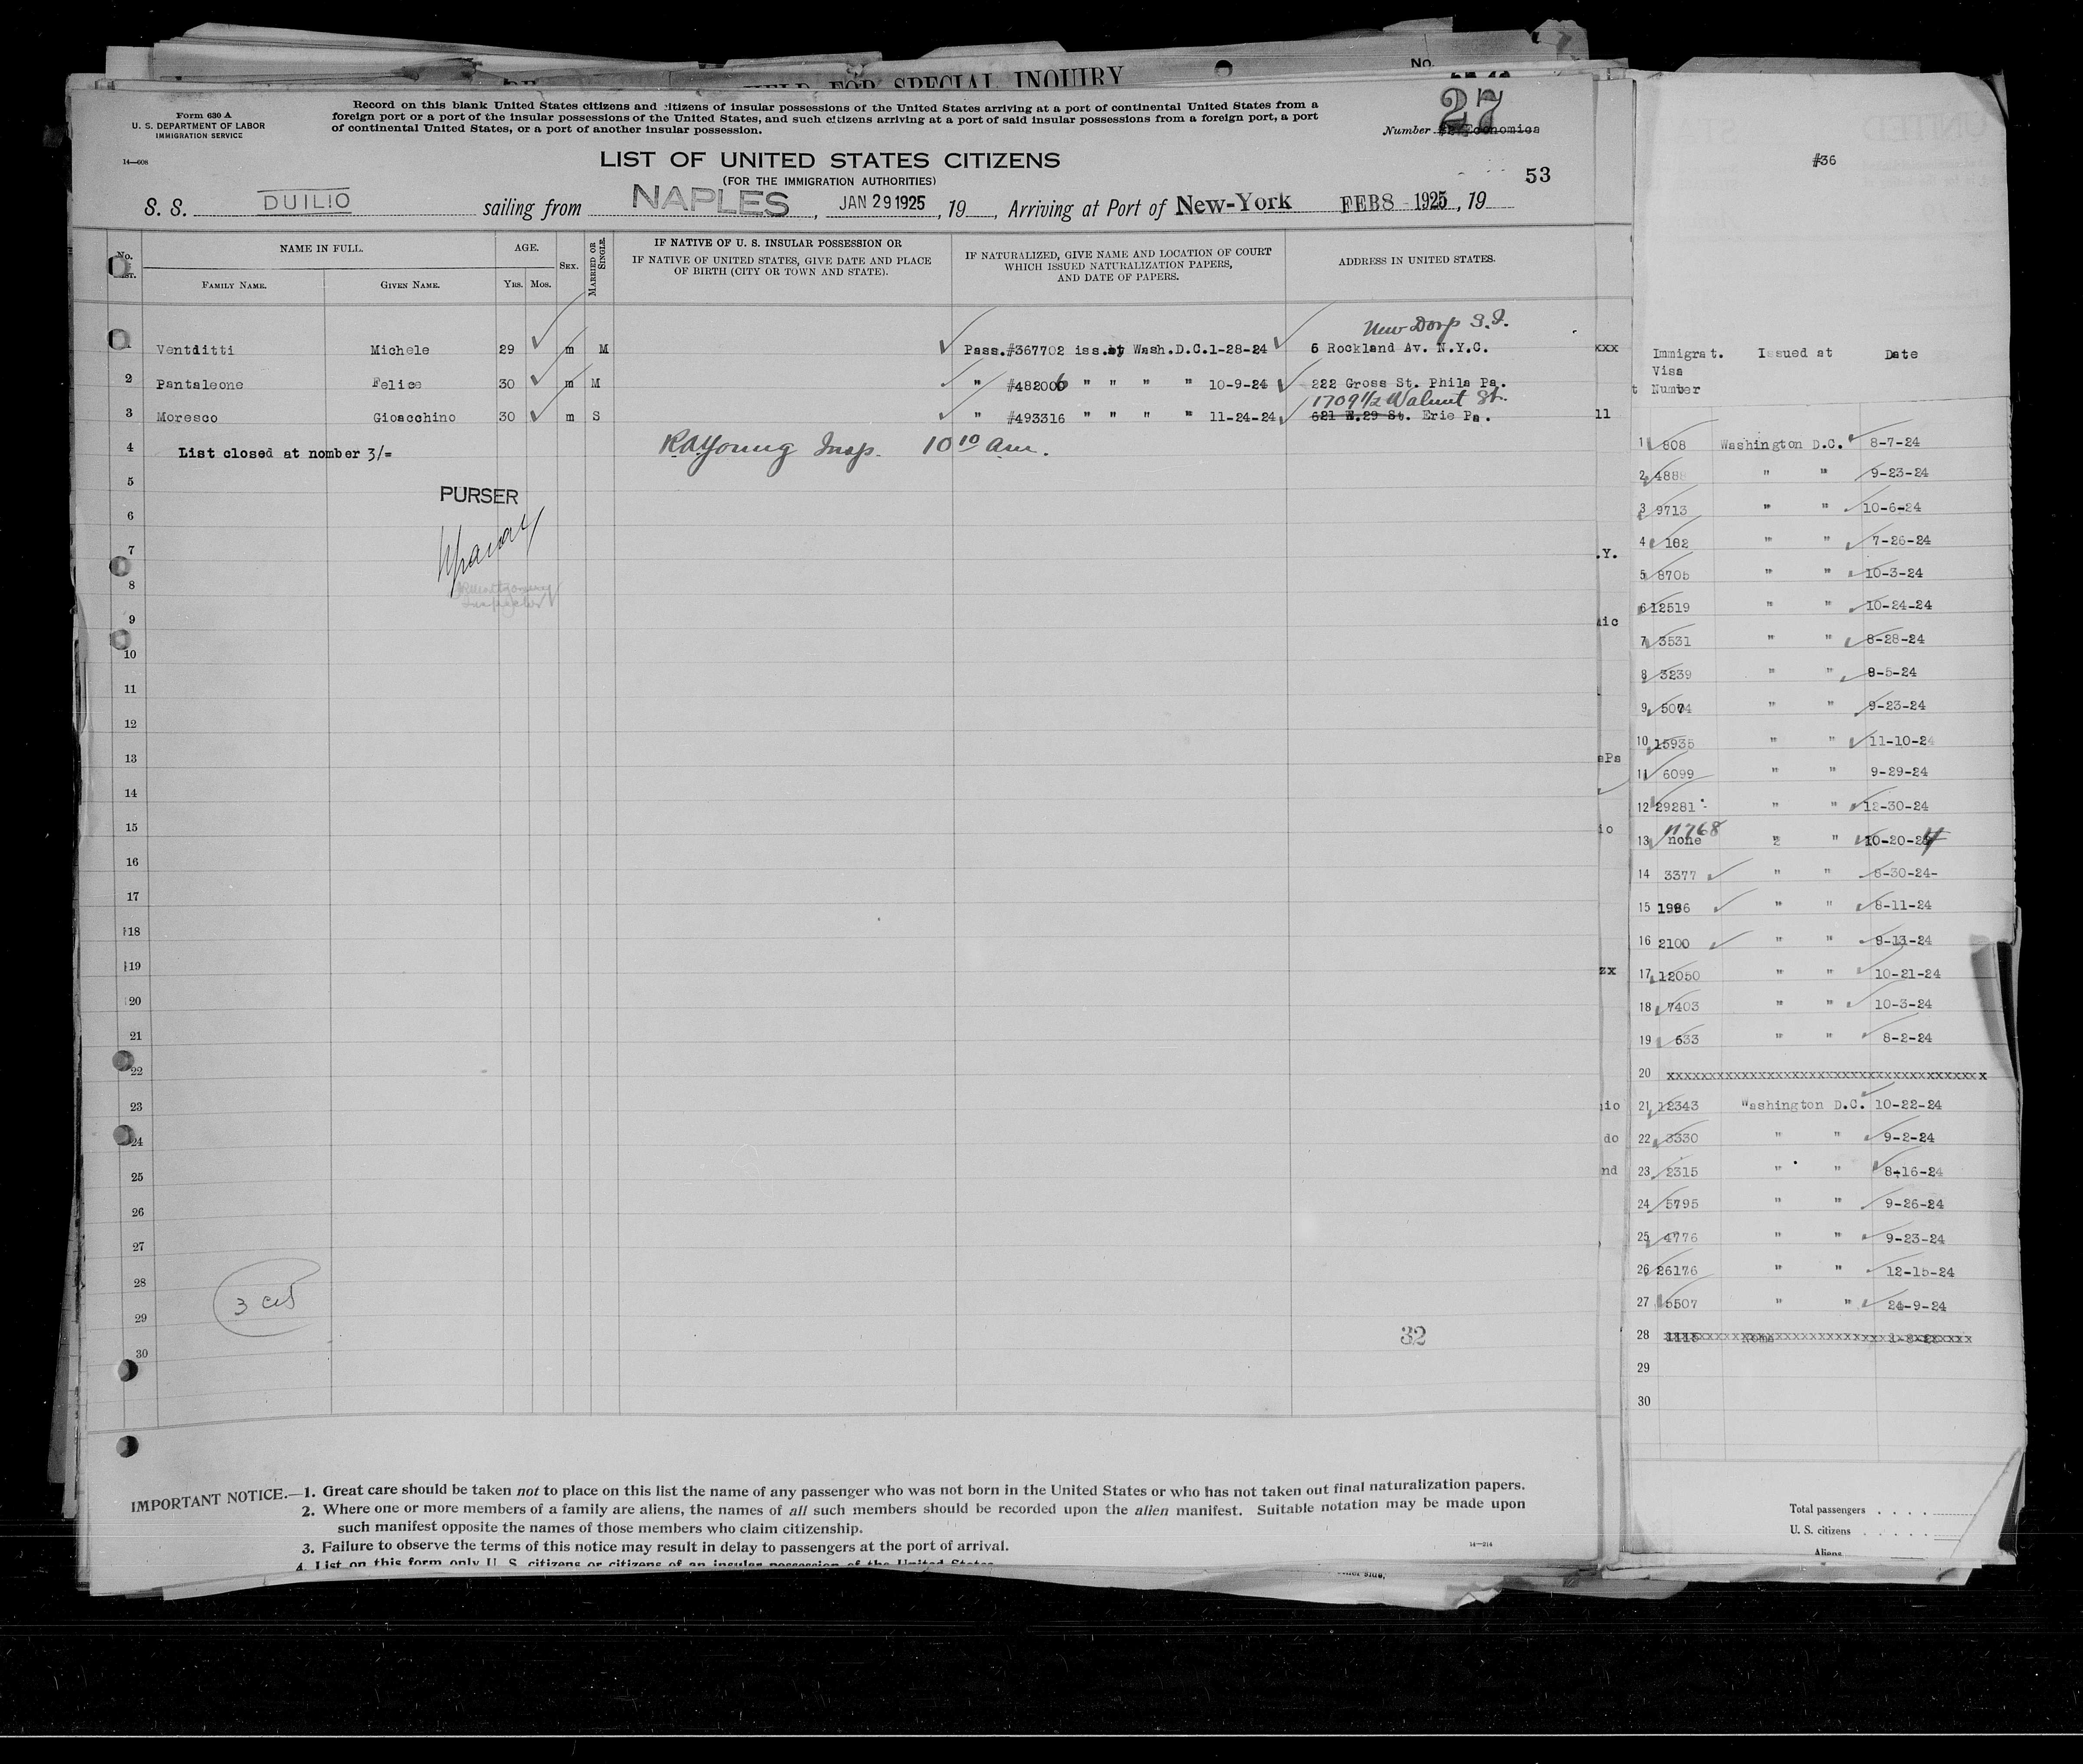 HELD FOR SPECIAL INQUIRY
No.
Form 630 A
U. S. DEPARTMENT OF LABOR
IMMIGRATION SERVICE
14—608
Record on this blank United States citizens and citizens of insular possessions of the United States arriving at a port of continental United States from a
foreign port or a port of the insular possessions of the United States, and such citizens arriving at a port of said insular possessions from a foreign port, a port
of continental United States, or a port of another insular possession.
27
Number Economica
LIST OF UNITED STATES CITIZENS
(FOR THE IMMIGRATION AUTHORITIES)
53
S. S. DUILIO sailing from NAPLES, JAN 29 1925, 19, Arriving at Port of New-York FEB 8 - 1925, 19
No. LIST.
NAME IN FULL.
FAMILY NAME. GIVEN NAME.
AGE.
YRS. MOS.
SEX.
MARRIED OR SINGLE.
IF NATIVE OF U. S. INSULAR POSSESSION OR
IF NATIVE OF UNITED STATES, GIVE DATE AND PLACE
OF BIRTH (CITY OR TOWN AND STATE).
IF NATURALIZED, GIVE NAME AND LOCATION OF COURT
WHICH ISSUED NATURALIZATION PAPERS,
AND DATE OF PAPERS.
ADDRESS IN UNITED STATES.
New Dorp S.I.
1 Ventditti Michele 29 m M Pass.#367702 iss.at Wash.D.C.1-28-24 6 Rockland Av. N.Y.C.
2 Pantaleone Felice 30 m M " #482006 " " " " 10-9-24 222 Gross St. Phila Pa.
1709 1/2 Walnut St.
3 Moresco Gioacchino 30 m S " #493316 " " " " 11-24-24 621 W.29 St. Erie Pa.
4 List closed at nomber 3/= RAYoung Insp. 10 10 am.
5
PURSER
6
7
8
Inspector
9
10
11
12
13
14
15
16
17
18
19
20
21
22
23
24
25
26
27
28
3 cit
29
32
30
IMPORTANT NOTICE.—1. Great care should be taken not to place on this list the name of any passenger who was not born in the United States or who has not taken out final naturalization papers.
2. Where one or more members of a family are aliens, the names of all such members should be recorded upon the alien manifest. Suitable notation may be made upon
such manifest opposite the names of those members who claim citizenship.
3. Failure to observe the terms of this notice may result in delay to passengers at the port of arrival.
14—214
4. List on this form only U. S. citizens or citizens of an insular possession of the United States.
other side.
xxx
ll
.Y.
ePa
io
zx
do
nd
#36
Immigrat. Issued at Date
Visa
t Number
1 808 Washington D.C. 8-7-24
2 4888 " " 9-23-24
3 9713 " " 10-6-24
4 182 " " 7-26-24
5 8705 " " 10-3-24
6 12519 " " 10-24-24
7 3531 " " 8-28-24
8 3239 " " 8-5-24
9 5074 " " 9-23-24
10 15935 " " 11-10-24
11 6099 " " 9-29-24
12 29281 " " 12-30-24
11768
13 none " " 10-20-24
14 3377 " " 8-30-24-
15 1986 " " 8-11-24
16 2100 " " 9-13-24
17 12050 " " 10-21-24
18 7403 " " 10-3-24
19 633 " " 8-2-24
20 xxxxxxxxxxxxxxxxxxxxxxxxxxxxxxxxxxxxxx
21 12343 Washington D.C. 10-22-24
22 3330 " " 9-2-24
23 2315 " " 8-16-24
24 5795 " " 9-26-24
25 4776 " " 9-23-24
26 26176 " " 12-15-24
27 5507 " " 24-9-24
28 1115 Rome
29
30
Total passengers
U. S. citizens
Aliens